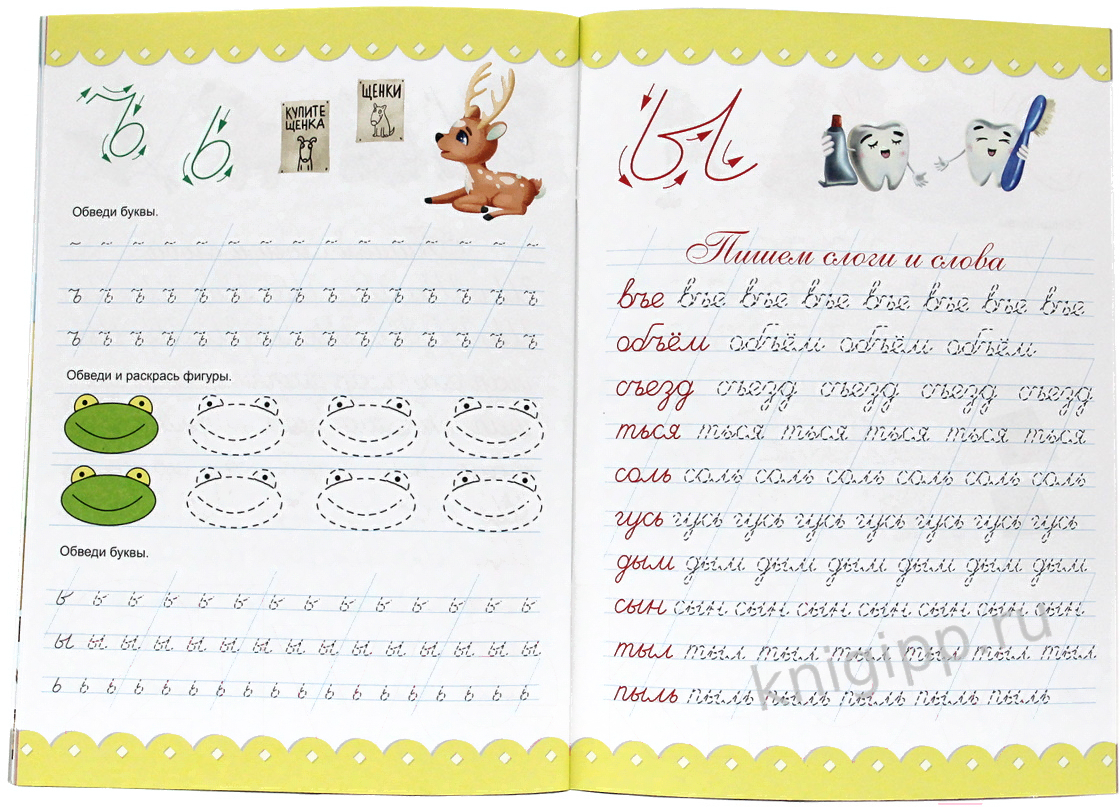 ъ ь
КУПИТЕ
ЩЕНКА
ЩЕНКИ
Обведи буквы.
ъ ъ ъ ъ ъ ъ ъ ъ ъ ъ ъ ъ ъ ъ ъ
ъ ъ ъ ъ ъ ъ ъ ъ ъ ъ ъ ъ ъ ъ ъ
Обведи и раскрась фигуры.
Обведи буквы.
ы ы ы ы ы ы ы ы ы ы ы ы ы ы ы
ь ь ь ь ь ь ь ь ь ь ь ь ь ь ь ь ь ь
ы
Пишем слоги и слова
въе въе въе въе въе въе въе въе
объём объём объём объём
съезд съезд съезд съезд съезд
ться ться ться ться ться ться
соль соль соль соль соль соль соль
гусь гусь гусь гусь гусь гусь гусь гусь
дым дым дым дым дым дым дым
сын сын сын сын сын сын сын сын
тыл тыл тыл тыл тыл тыл тыл
пыль пыль пыль пыль пыль пыль
knigipp.ru